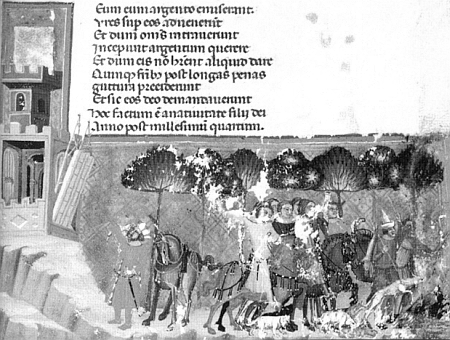 Cum eum argento emiserant.
Vt es sup eos aduenerit
Et dum om̄s intrauerunt
Inceperunt argentum querere
Et dum eis nō hr̄ent aliquid dare
post longas penas
guttura
Et sic eos deo demandauerunt
Hoc factum ē a natiuitate filij dei
Anno post millesimū quartum.